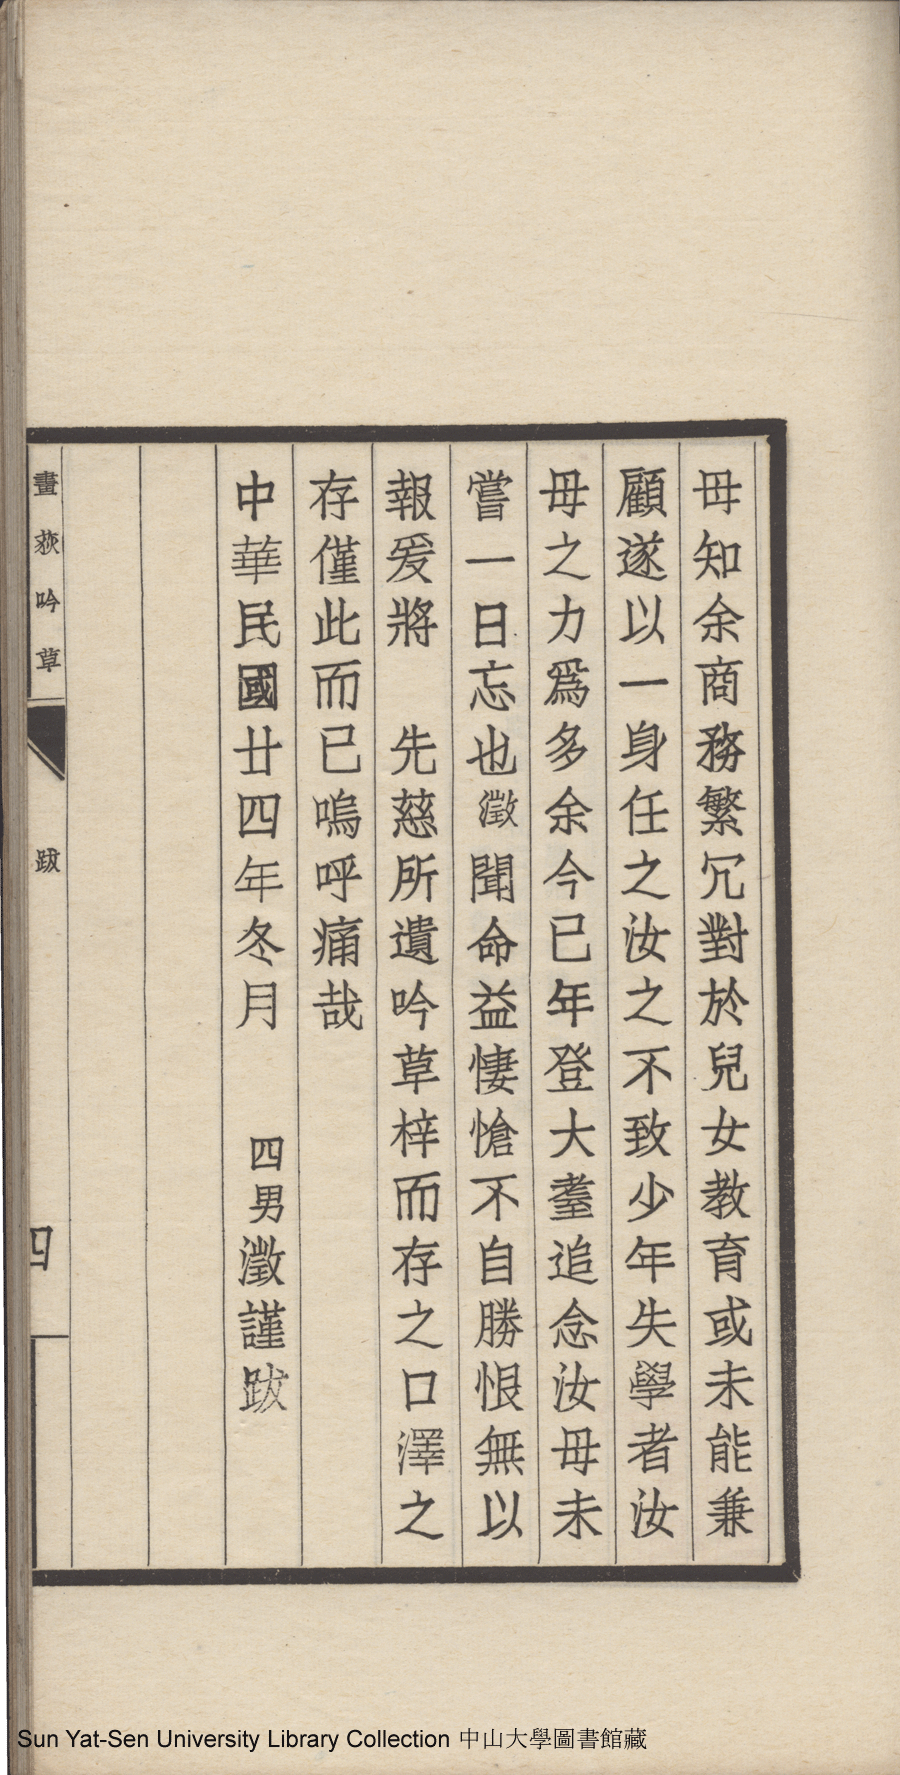 毋知余商務繁冗對於兒女教育或未能兼
顧遂以一身任之汝之不致少年失學者汝
毋之力爲多余今已年登大耋追念汝毋未
嘗一日忘也澂聞命益悽愴不自勝恨無以
報爰將　先慈所遺吟草梓而存之口澤之
存僅此而已嗚呼痛哉
中華民國廿四年冬月　四男澂謹跋
畫荻吟草　跋　四
Sun Yat-Sen University Library Collection 中山大學圖書館藏